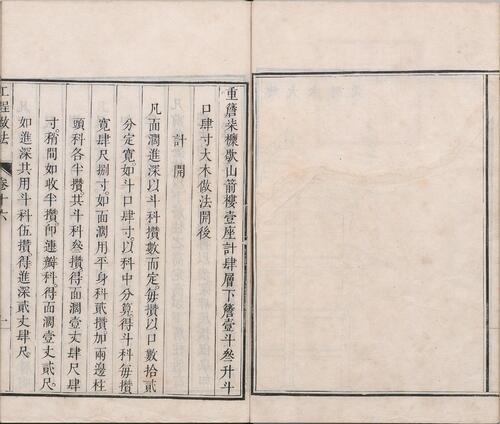 重簷柒檩歇山箭樓壹座計肆層下簷壹斗叁升斗
口肆寸大木做法開後
計開
凡面濶進深以斗科攢數而定每攢以口數拾貳
分定寬如斗口肆寸以科中分算得斗科每攢
寬肆尺捌寸如面濶用平身科貳攢加兩邊柱
頭科各半攢共斗科叁攢得面濶壹丈肆尺肆
寸稍間如收半攢即連瓣科得面濶壹丈貳尺
如進深共用斗科伍攢得進深貳丈肆尺
工程做法 卷十六 一